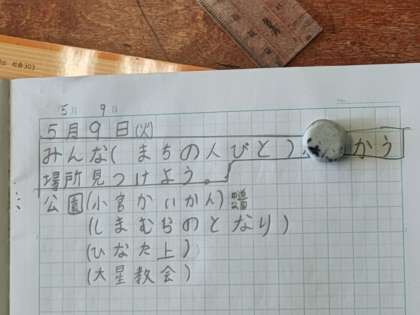 5月 9日
5月9日(火)
みんな(まちの人びと)、かう
場所見つけよう。
公園(小宮かいかん)
(しまむらのとなり)
(ひなた上)
(大星教会)